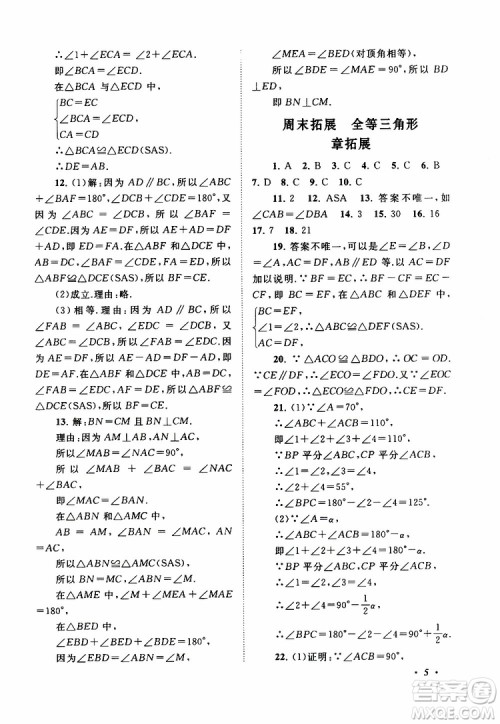 ∴∠1+∠ECA=∠2+∠ECA.
即∠BCA=∠ECD.
在△BCA 与△ECD 中,
BC=EC
∠BCA=∠ECD
CA=CD
∴△BCA≌△ECD(SAS).
∴DE=AB.
12. (1)解:因为 AD∥BC,所以∠BAF
+∠ABC=180°,∠BAD+∠CDE=180°,因
为∠ABC=∠DCB,所以∠BAF=
∠CDE.因为 AE=DF,所以 AE+AD=DF
+AD,即 DE=AF.因为 BA=CD,所以
△DCE≌△ABF(SAS).所以 BF=CE.
(2)成立.理由:略.
(3)相等.理由:因为 AD∥BC,所以
∠FAB=∠ABC,∠EDC=∠DCB.因为
∠ABC=∠DCB,所以∠FAB=∠EDC.因为
AE=DF,所以 AE-AD=DF-AD.即
DE=AF.因为 AB=DC,所以△BAF≌
△CDE(SAS),所以 BF=CE.
13. 解:BN=CM 且 BN⊥CM.
理由:因为 AM⊥AB,AN⊥AC,
所以∠MAB=∠NAC=90°,
所以∠MAB+∠BAC=∠NAC+∠BAC,
即∠MAC=∠BAN.
在△ABN 和△AMC 中,
AB=AM,∠BAN=∠MAC,AN=AC,
所以△ABN≌△AMC(SAS).
所以 BN=MC,∠ABN=∠AMC.
在△AME 中,∠AME+∠MEA=90°,
在△BED 中,
∠EBD+∠BED+∠BDE=180°,
∠MEA=∠BED(对顶角相等),
所以∠BDE=∠MAE=90°,
即 BN⊥CM.
周末拓展 全等三角形
章拓展
1. A 2. B 3. C 4. C 5. B 6. B
7. D 8. C 9. C 10. C
11. 2 12. ASA 13. 答案不唯一,如
∠CAB=∠DBA 14. 40 15. 16 16. 16
17. 7 18. 12
19. 答案不唯一,如∠1=∠2,∠B=
∠E,∠A=∠D,AC=DF.选择∠1=∠2
加以说明.∵BF=EC,∴BF-CF=EC-
CF,即 BC=EF.在△ABC 和△DEF 中,
BC=EF
∠1=∠2
AC=DF
∴△ABC≌△DEF.
20. ∵△ACO≌△BDO,∴CO=DO.
∵CE∥DF,∴∠ECO=∠FDO.又∵∠EOC
=∠FOD,∴△EOC≌△FOD,∴CE=DF.
21. (1)∵∠A=70°,
∴∠ABC+∠ACB=110°.
∵BP 平分∠ABC,CP 平分∠ACB,
∴∠1=∠3,∠2=∠4.
∴∠2+∠4=55°.
∴∠BPC=180°-∠2-∠4=125°.
(2)∵∠A=α,
∴∠ABC+∠ACB=180°-α.
∵BP 平分∠ABC,CP 平分∠ACB,
∴∠1=∠3,∠2=∠4.
∴∠2+∠4=90°-1/2α.
∴∠BPC=180°-∠2-∠4=90°+1/2α.
22. (1)证明:∵∠ABC=90°,
· 5 ·
答案圈
MXQE.COM